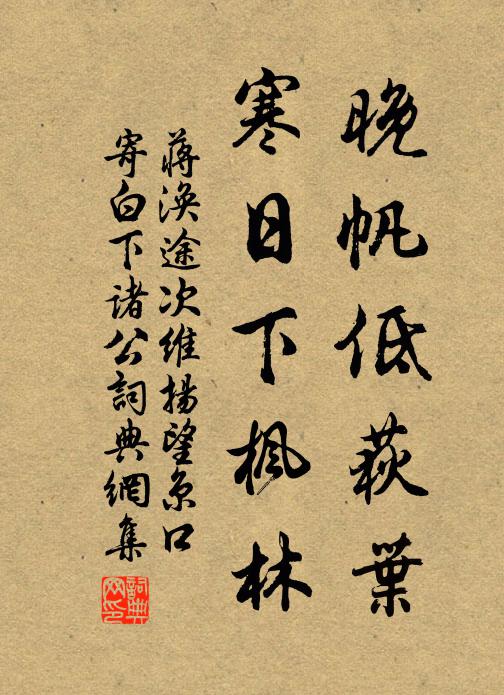 晚帆低荻葉
寒日下楓林
蔣渙途次維揚望京口
寄白下諸公詞典網集
詞典网印